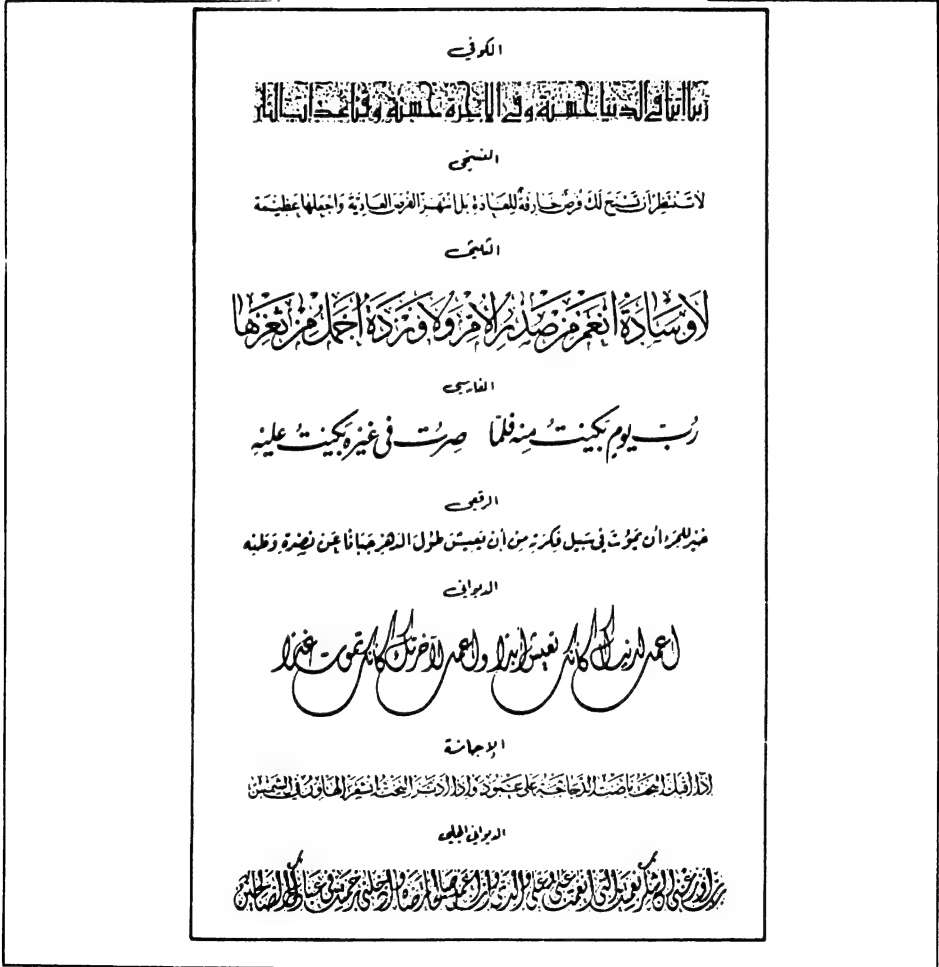 الكوفي
ربنا اتنا في الدنيا حسنة وفي الاخرة حسنة وقنا عذاب النار
النسخي
لا تنتظر أن تسنح لك فرص خارقة للعادة بل انتهز الفرص العادية واجعلها عظيمة
الثلثي
لا وسادة أنعم من صدر الأم ولا وردة أجمل من ثغرها
الفارسي
رُبّ يوم بكيتُ منه فلمّا صرتُ في غيره بكيتُ عليه
الرقعي
خير للمرء أن يموت في سبيل فكرته من أن يعيش طول الدهر جبانا عن نصرة وطنه
الديواني
اعمل لدنياك كأنك تعيش أبدا واعمل لآخرتك كأنك تموت غدا
الإجازة
إذا أقبل البخت باضت الدجاجة على عمود وإذا أدبر البخت انشعر الهاون في الشمس
الديواني الجلي
رب أوزعني أن أشكر نعمتك التي أنعمت علي وعلى والدي وأن أعمل صالحا ترضاه وأدخلني برحمتك في عبادك الصالحين